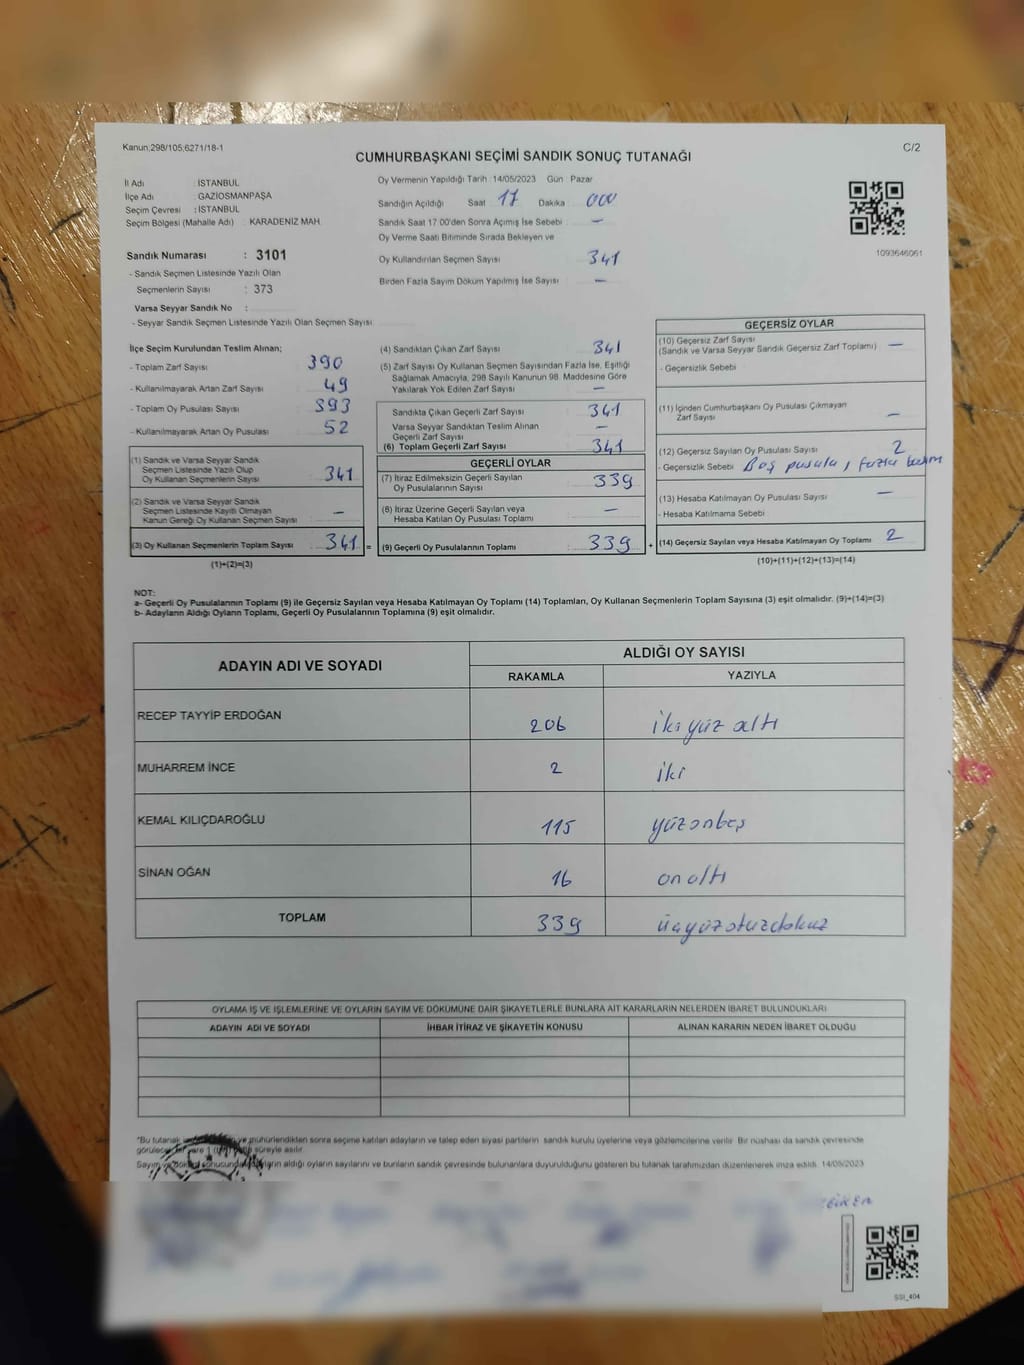 Kanun;298/105;6271/18-1
C/2
CUMHURBAŞKANI SEÇİMİ SANDIK SONUÇ TUTANAĞI
İl Adı : İSTANBUL
İlçe Adı : GAZİOSMANPAŞA
Seçim Çevresi : İSTANBUL
Seçim Bölgesi (Mahalle Adı) : KARADENİZ MAH.
Sandık Numarası : 3101
- Sandık Seçmen Listesinde Yazılı Olan
Seçmenlerin Sayısı : 373
Varsa Seyyar Sandık No :
- Seyyar Sandık Seçmen Listesinde Yazılı Olan Seçmen Sayısı
Oy Vermenin Yapıldığı Tarih : 14/05/2023 Gün : Pazar
Sandığın Açıldığı Saat 17 Dakika 00
Sandık Saat 17:00'den Sonra Açımış İse Sebebi : —
Oy Verme Saati Bitiminde Sırada Bekleyen ve
Oy Kullandırılan Seçmen Sayısı : 341
Birden Fazla Sayım Döküm Yapılmış İse Sayısı : —
1093646061
İlçe Seçim Kurulundan Teslim Alınan;
- Toplam Zarf Sayısı : 390
- Kullanılmayarak Artan Zarf Sayısı : 49
- Toplam Oy Pusulası Sayısı : 393
- Kullanılmayarak Artan Oy Pusulası : 52
(1) Sandık ve Varsa Seyyar Sandık
Seçmen Listesinde Yazılı Olup
Oy Kullanan Seçmenlerin Sayısı : 341
(2) Sandık ve Varsa Seyyar Sandık
Seçmen Listesinde Kayıtlı Olmayan
Kanun Gereği Oy Kullanan Seçmen Sayısı : —
(3) Oy Kullanan Seçmenlerin Toplam Sayısı : 341 =
(1)+(2)=(3)
(4) Sandıktan Çıkan Zarf Sayısı : 341
(5) Zarf Sayısı Oy Kullanan Seçmen Sayısından Fazla İse, Eşitliği
Sağlamak Amacıyla, 298 Sayılı Kanunun 98. Maddesine Göre
Yakılarak Yok Edilen Zarf Sayısı : —
Sandıkta Çıkan Geçerli Zarf Sayısı : 341
Varsa Seyyar Sandıktan Teslim Alınan
Geçerli Zarf Sayısı : —
(6) Toplam Geçerli Zarf Sayısı : 341
GEÇERLİ OYLAR
(7) İtiraz Edilmeksizin Geçerli Sayılan
Oy Pusulalarının Sayısı : 339
(8) İtiraz Üzerine Geçerli Sayılan veya
Hesaba Katılan Oy Pusulası Toplamı : —
(9) Geçerli Oy Pusulalarının Toplamı : 339 +
GEÇERSİZ OYLAR
(10) Geçersiz Zarf Sayısı
(Sandık ve Varsa Seyyar Sandık Geçersiz Zarf Toplamı) : —
- Geçersizlik Sebebi
(11) İçinden Cumhurbaşkanı Oy Pusulası Çıkmayan
Zarf Sayısı : —
(12) Geçersiz Sayılan Oy Pusulası Sayısı : 2
- Geçersizlik Sebebi : Boş pusula, fazla
(13) Hesaba Katılmayan Oy Pusulası Sayısı : —
- Hesaba Katılmama Sebebi
(14) Geçersiz Sayılan veya Hesaba Katılmayan Oy Toplamı : 2
(10)+(11)+(12)+(13)=(14)
NOT:
a- Geçerli Oy Pusulalarının Toplamı (9) ile Geçersiz Sayılan veya Hesaba Katılmayan Oy Toplamı (14) Toplamları, Oy Kullanan Seçmenlerin Toplam Sayısına (3) eşit olmalıdır. (9)+(14)=(3)
b- Adayların Aldığı Oyların Toplamı, Geçerli Oy Pusulalarının Toplamına (9) eşit olmalıdır.
ADAYIN ADI VE SOYADI
ALDIĞI OY SAYISI
RAKAMLA YAZIYLA
RECEP TAYYİP ERDOĞAN 206 İkiyüz altı
MUHARREM İNCE 2 iki
KEMAL KILIÇDAROĞLU 115 yüzonbeş
SİNAN OĞAN 16 onaltı
TOPLAM 339 üçyüzotuzdokuz
OYLAMA İŞ VE İŞLEMLERİNE VE OYLARIN SAYIM VE DÖKÜMÜNE DAİR ŞİKAYETLERLE BUNLARA AİT KARARLARIN NELERDEN İBARET BULUNDUKLARI
ADAYIN ADI VE SOYADI İHBAR İTİRAZ VE ŞİKAYETİN KONUSU ALINAN KARARIN NEDEN İBARET OLDUĞU
*Bu tutanak ve mühürlendikten sonra seçime katılan adayların ve talep eden siyasi partilerin sandık kurulu üyelerine veya gözlemcilerine verilir. Bir nüshası da sandık çevresinde
süreyle asılır.
aldığı oyların sayılarını ve bunların sandık çevresinde bulunanlara duyurulduğunu gösteren bu tutanak tarafımızdan düzenlenerek imza edildi. 14/05/2023
SSI_404